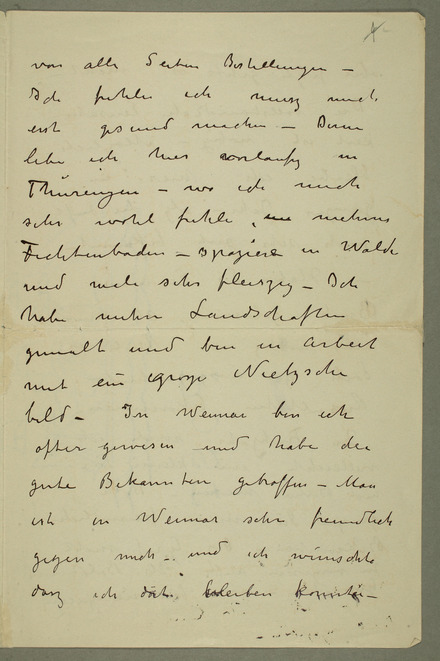 4.
von alle Seiten Bestellungen –
Ich fühle ich musz mich
erst gesund machen – Denn
lebe ich hier vorlaufig in
Thüringen – wo ich mich
sehr wohl fuhle, nehme
Fichtenbaden – spaziere in Walde
und male sehr fleiszig – Ich
habe mehre Landschaften
gemalt und bin in Arbeit
mit ein grosze Nietzsche
bild – In Weimar bin ich
ofter gewesen und habe da
gute Bekannten getroffen – Man
ist in Weimar sehr freundlich
gegen mich – und ich wünschte
dasz ich dort bleiben konnte –